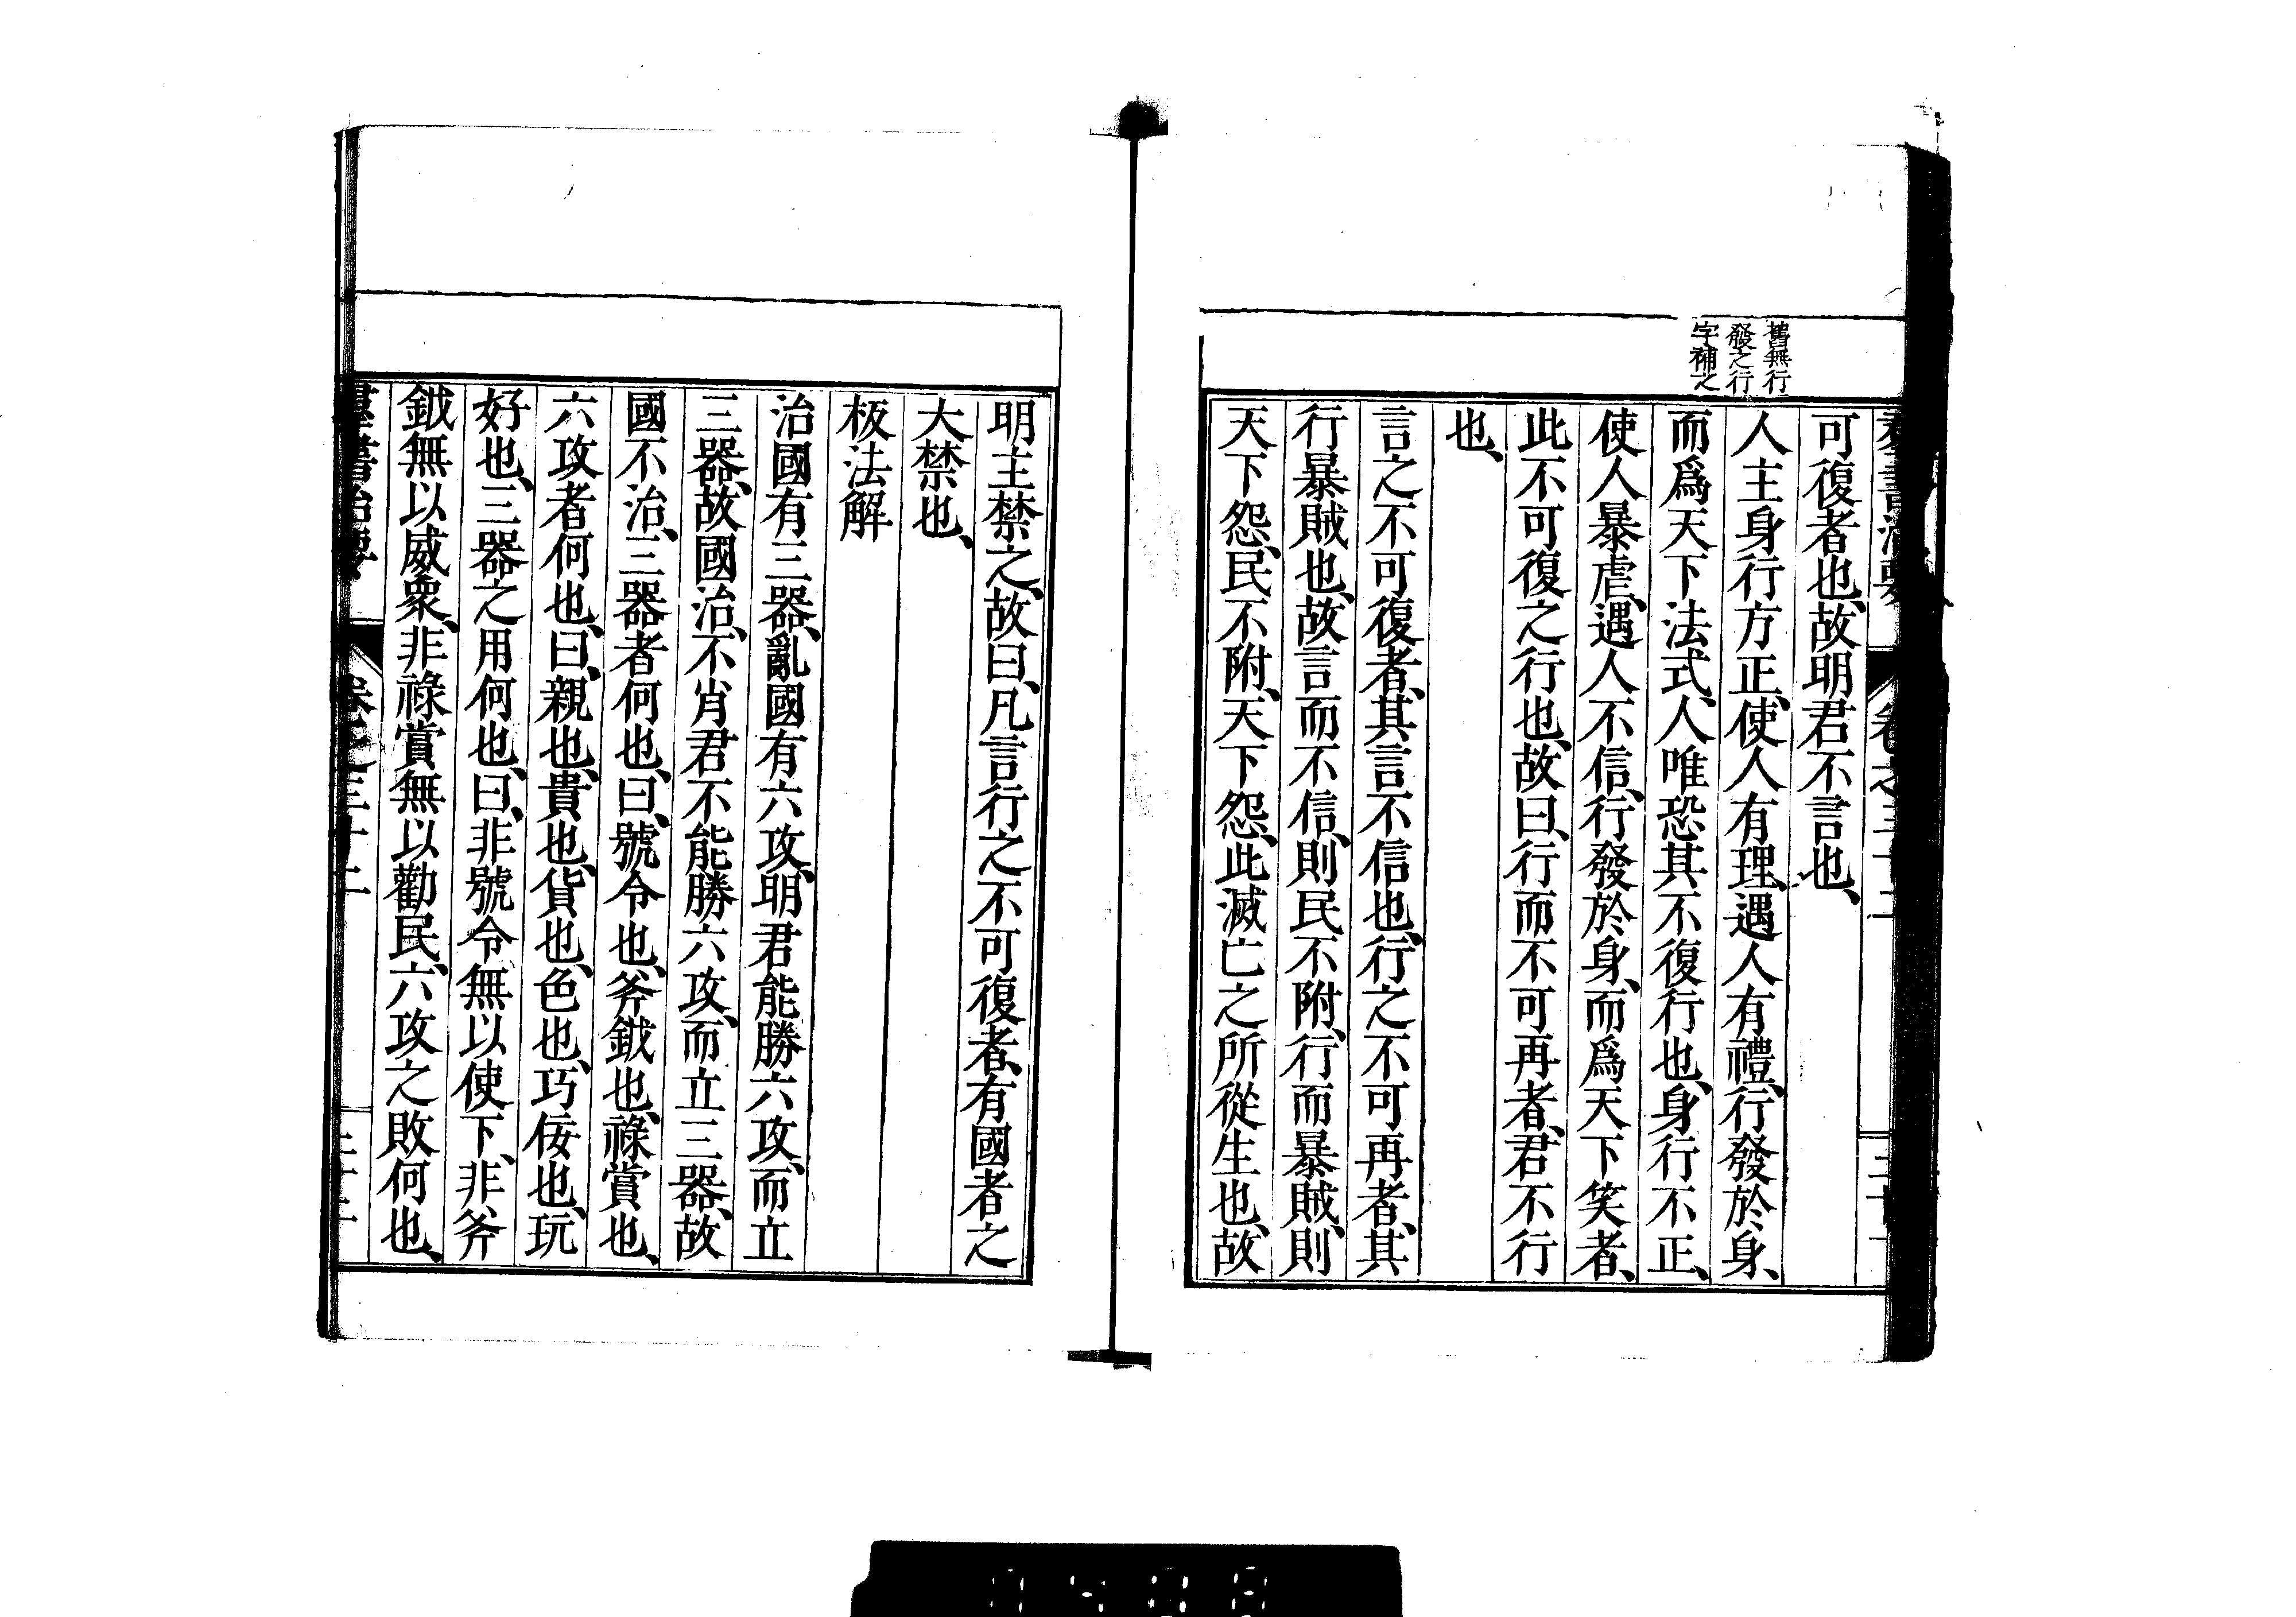 舊無行
發之行
字補之
可復者也、故明君不言也、
人主身行方正、使人有理、遇人有禮、行發於身、
而爲天下法式、人唯恐其不復行也、身行不正、
使人暴虐、遇人不信、行發於身、而爲天下笑者、
此不可復之行也、故曰、行而不可再者、君不行
也、
言之不可復者、其言不信也、行之不可再者、其
行暴賊也、故言而不信、則民不附、行而暴賊、則
天下怨、民不附、天下怨、此滅亡之所從生也、故
明主禁之、故曰、凡言行之不可復者、有國者之
大禁也、
板法解
治國有三器、亂國有六攻、明君能勝六攻、而立
三器、故國治、不肖君不能勝六攻、而立三器、故
國不治、三器者何也、曰、號令也、斧鉞也、祿賞也、
六攻者何也、曰、親也、貴也、貨也、色也、巧佞也、玩
好也、三器之用何也、曰、非號令無以使下、非斧
鉞無以威衆、非祿賞無以勸民、六攻之敗何也、
羣書治要 卷之三十二